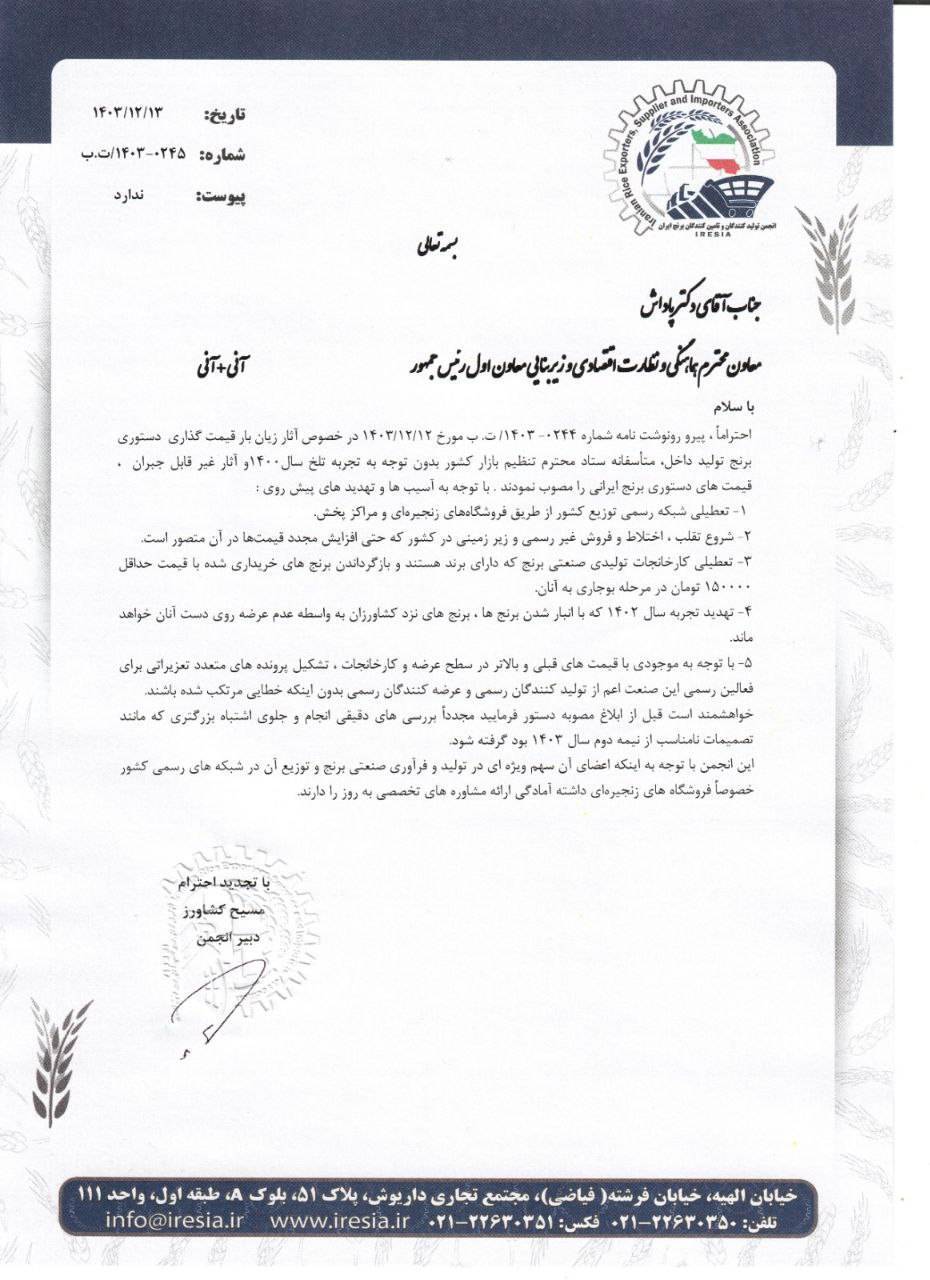 Iranian Rice Exporters, Supplier and Importers Association
انجمن تولید کنندگان و تامین کنندگان برنج ایران
IRESIA
تاریخ: ۱۴۰۳/۱۲/۱۳
شماره: ۱۴۰۳-۰۲۴۵/ت.ب
پیوست: ندارد
بسمه تعالی
جناب آقای دکتر پاداش
معاون محترم هماهنگی و نظارت اقتصادی و زیربنایی معاون اول رئیس جمهور آنی+آنی
با سلام
احتراماً ، پیرو رونوشت نامه شماره ۰۲۴۴- ۱۴۰۳/ ت. ب مورخ ۱۴۰۳/۱۲/۱۲ در خصوص آثار زیان بار قیمت گذاری دستوری
برنج تولید داخل، متأسفانه ستاد محترم تنظیم بازار کشور بدون توجه به تجربه تلخ سال۱۴۰۰و آثار غیر قابل جبران ،
قیمت های دستوری برنج ایرانی را مصوب نمودند . با توجه به آسیب ها و تهدید های پیش روی :
۱- تعطیلی شبکه رسمی توزیع کشور از طریق فروشگاه‌های زنجیره‌ای و مراکز پخش.
۲- شروع تقلب ، اختلاط و فروش غیر رسمی و زیر زمینی در کشور که حتی افزایش مجدد قیمت‌ها در آن متصور است.
۳- تعطیلی کارخانجات تولیدی صنعتی برنج که دارای برند هستند و بازگرداندن برنج های خریداری شده با قیمت حداقل
۱۵۰۰۰۰ تومان در مرحله بوجاری به آنان.
۴- تهدید تجربه سال ۱۴۰۲ که با انبار شدن برنج ها ، برنج های نزد کشاورزان به واسطه عدم عرضه روی دست آنان خواهد
ماند.
۵- با توجه به موجودی با قیمت های قبلی و بالاتر در سطح عرضه و کارخانجات ، تشکیل پرونده های متعدد تعزیراتی برای
فعالین رسمی این صنعت اعم از تولید کنندگان رسمی و عرضه کنندگان رسمی بدون اینکه خطایی مرتکب شده باشند.
خواهشمند است قبل از ابلاغ مصوبه دستور فرمایید مجدداً بررسی های دقیقی انجام و جلوی اشتباه بزرگتری که مانند
تصمیمات نامناسب از نیمه دوم سال ۱۴۰۳ بود گرفته شود.
این انجمن با توجه به اینکه اعضای آن سهم ویژه ای در تولید و فرآوری صنعتی برنج و توزیع آن در شبکه های رسمی کشور
خصوصاً فروشگاه های زنجیره‌ای داشته آمادگی ارائه مشاوره های تخصصی به روز را دارند.
با تجدید احترام
مسیح کشاورز
دبیر انجمن
خیابان الهیه، خیابان فرشته( فیاضی)، مجتمع تجاری داریوش، پلاک ۵۱، بلوک A، طبقه اول، واحد ۱۱۱
تلفن: ۲۲۶۳۰۳۵۰-۰۲۱ فکس: ۲۲۶۳۰۳۵۱-۰۲۱ www.iresia.ir info@iresia.ir